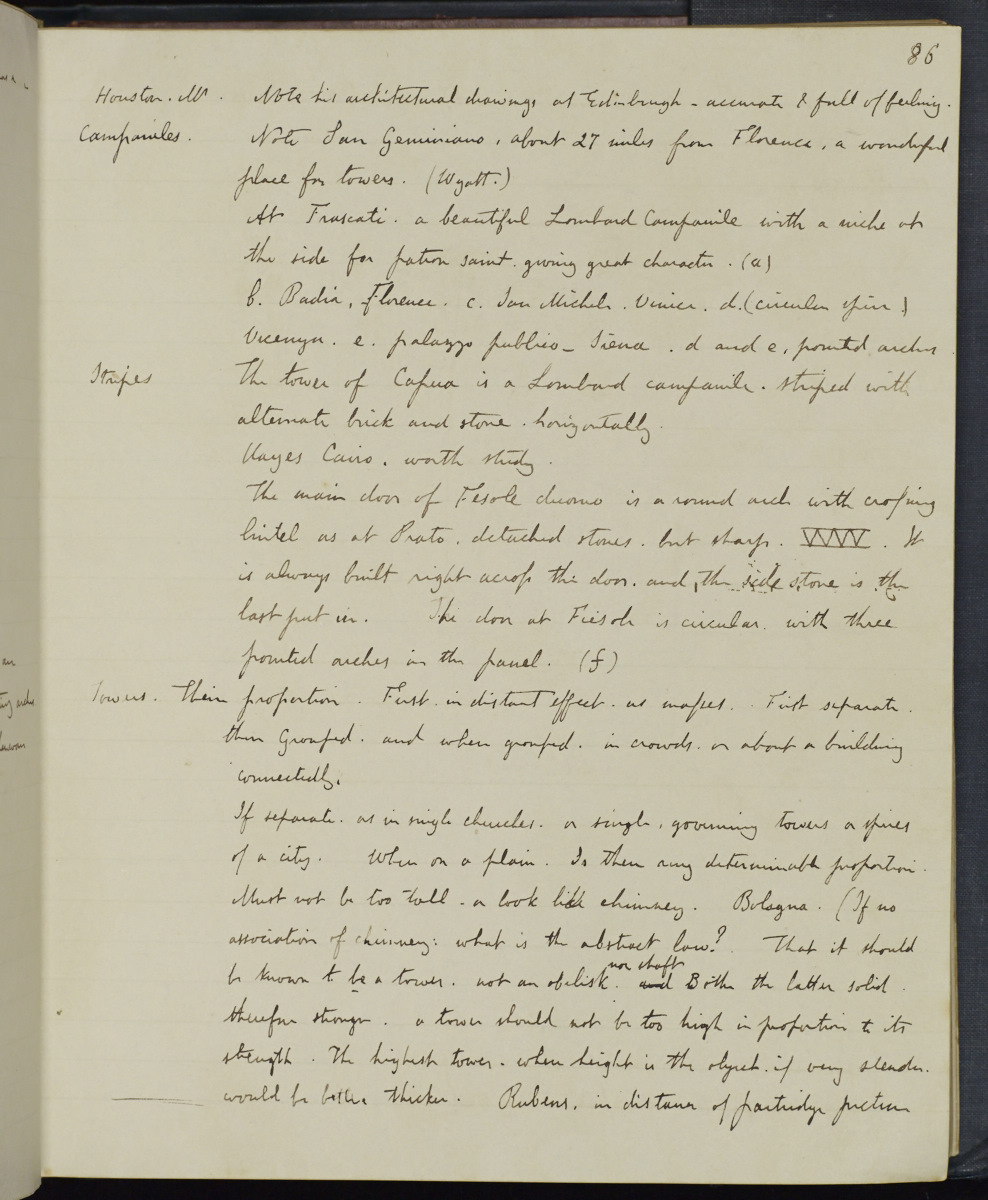 86
Houston. Mr. Note his architectural drawings at Edinburgh - accurate & full of feeling.
Campaniles. Note San Geminiano, about 27 miles from Florence, a wonderful
place for towers. (Wyatt.)
At Frascati. a beautiful Lombard Campanile with a niche at
the side for patron saint. giving great character. (a)
b. Badia, Florence. c. San Michele. Venice. d. (circular spire)
Vicenza. e. palazzo publico - Siena. d and e, pointed arches.
Stripes The tower of Capua is a Lombard campanile. striped with
alternate brick and stone. horizontally.
Hayes Cairo. worth study.
The main door of Fesole duomo is a round arch with crossing
lintel as at Prato. detached stones. but sharp. It
is always built right across the door. and, the side stone is the
last put in. The door at Fiesole is circular. with three
pointed arches in the panel. (f)
Towers. Their proportion. First. in distant effect. as masses. First separate.
then Grouped. and when grouped. in crowds. or about a building
connectedly.
If separate. as in single churches. or single, governing towers or spires
of a city. When on a plain. Is there any determinable proportion.
Must not be too tall. or look like chimney. Bologna. (If no
association of chimney: what is the abstract law? That it should
be known to be a tower. not an obelisk. nor shaft and Both the latter solid.
therefore stronger. a tower should not be too high in proportion to its
strength. The highest tower. when height is the object. if very slender.
would be better thicker. Rubens, in distance of partridge picture